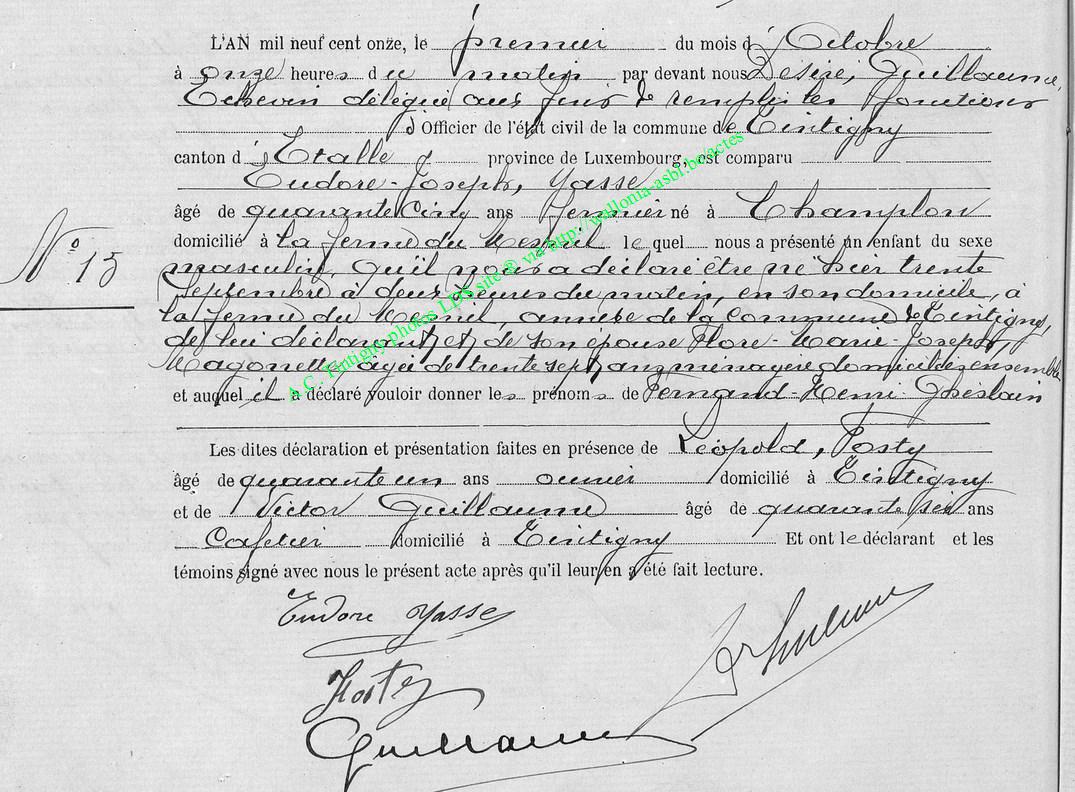 L'AN mil neuf cent onze, le premier du mois d'Octobre
à onze heures du matin par devant nous Désiré, Guillaume,
Echevin délégué aux fins de remplir les fonctions
d'Officier de l'état civil de la commune de Tintigny
canton d'Etalle province de Luxembourg, est comparu
Eudore-Joseph, Yasse
âgé de quarante cinq ans fermier né à Champlon
domicilié à la ferme du Mesnil lequel nous a présenté un enfant du sexe
N° 15
masculin, qu'il nous a déclaré être né hier trente
Septembre à deux heures du matin, en son domicile, à
la ferme du Mesnil, annexe de la commune de Tintigny,
de lui déclarant et de son épouse Flore-Marie-Joseph,
Magonette, âgée de trente sept ans ménagère domiciliés ensemble
et auquel il a déclaré vouloir donner les prénoms de Fernand-Henri-Ghislain
Les dites déclaration et présentation faites en présence de Léopold, Hosty
âgé de quarante un ans ouvrier domicilié à Tintigny
et de Victor Guillaume âgé de quarante six ans
Cafetier domicilié à Tintigny Et ont le déclarant et les
témoins signé avec nous le présent acte après qu'il leur en a été fait lecture.
Eudore Yasse
Hosty
Guillaume
A.C. Tintigny photos LDS site ® via http://wallonia-asbl.be/actes